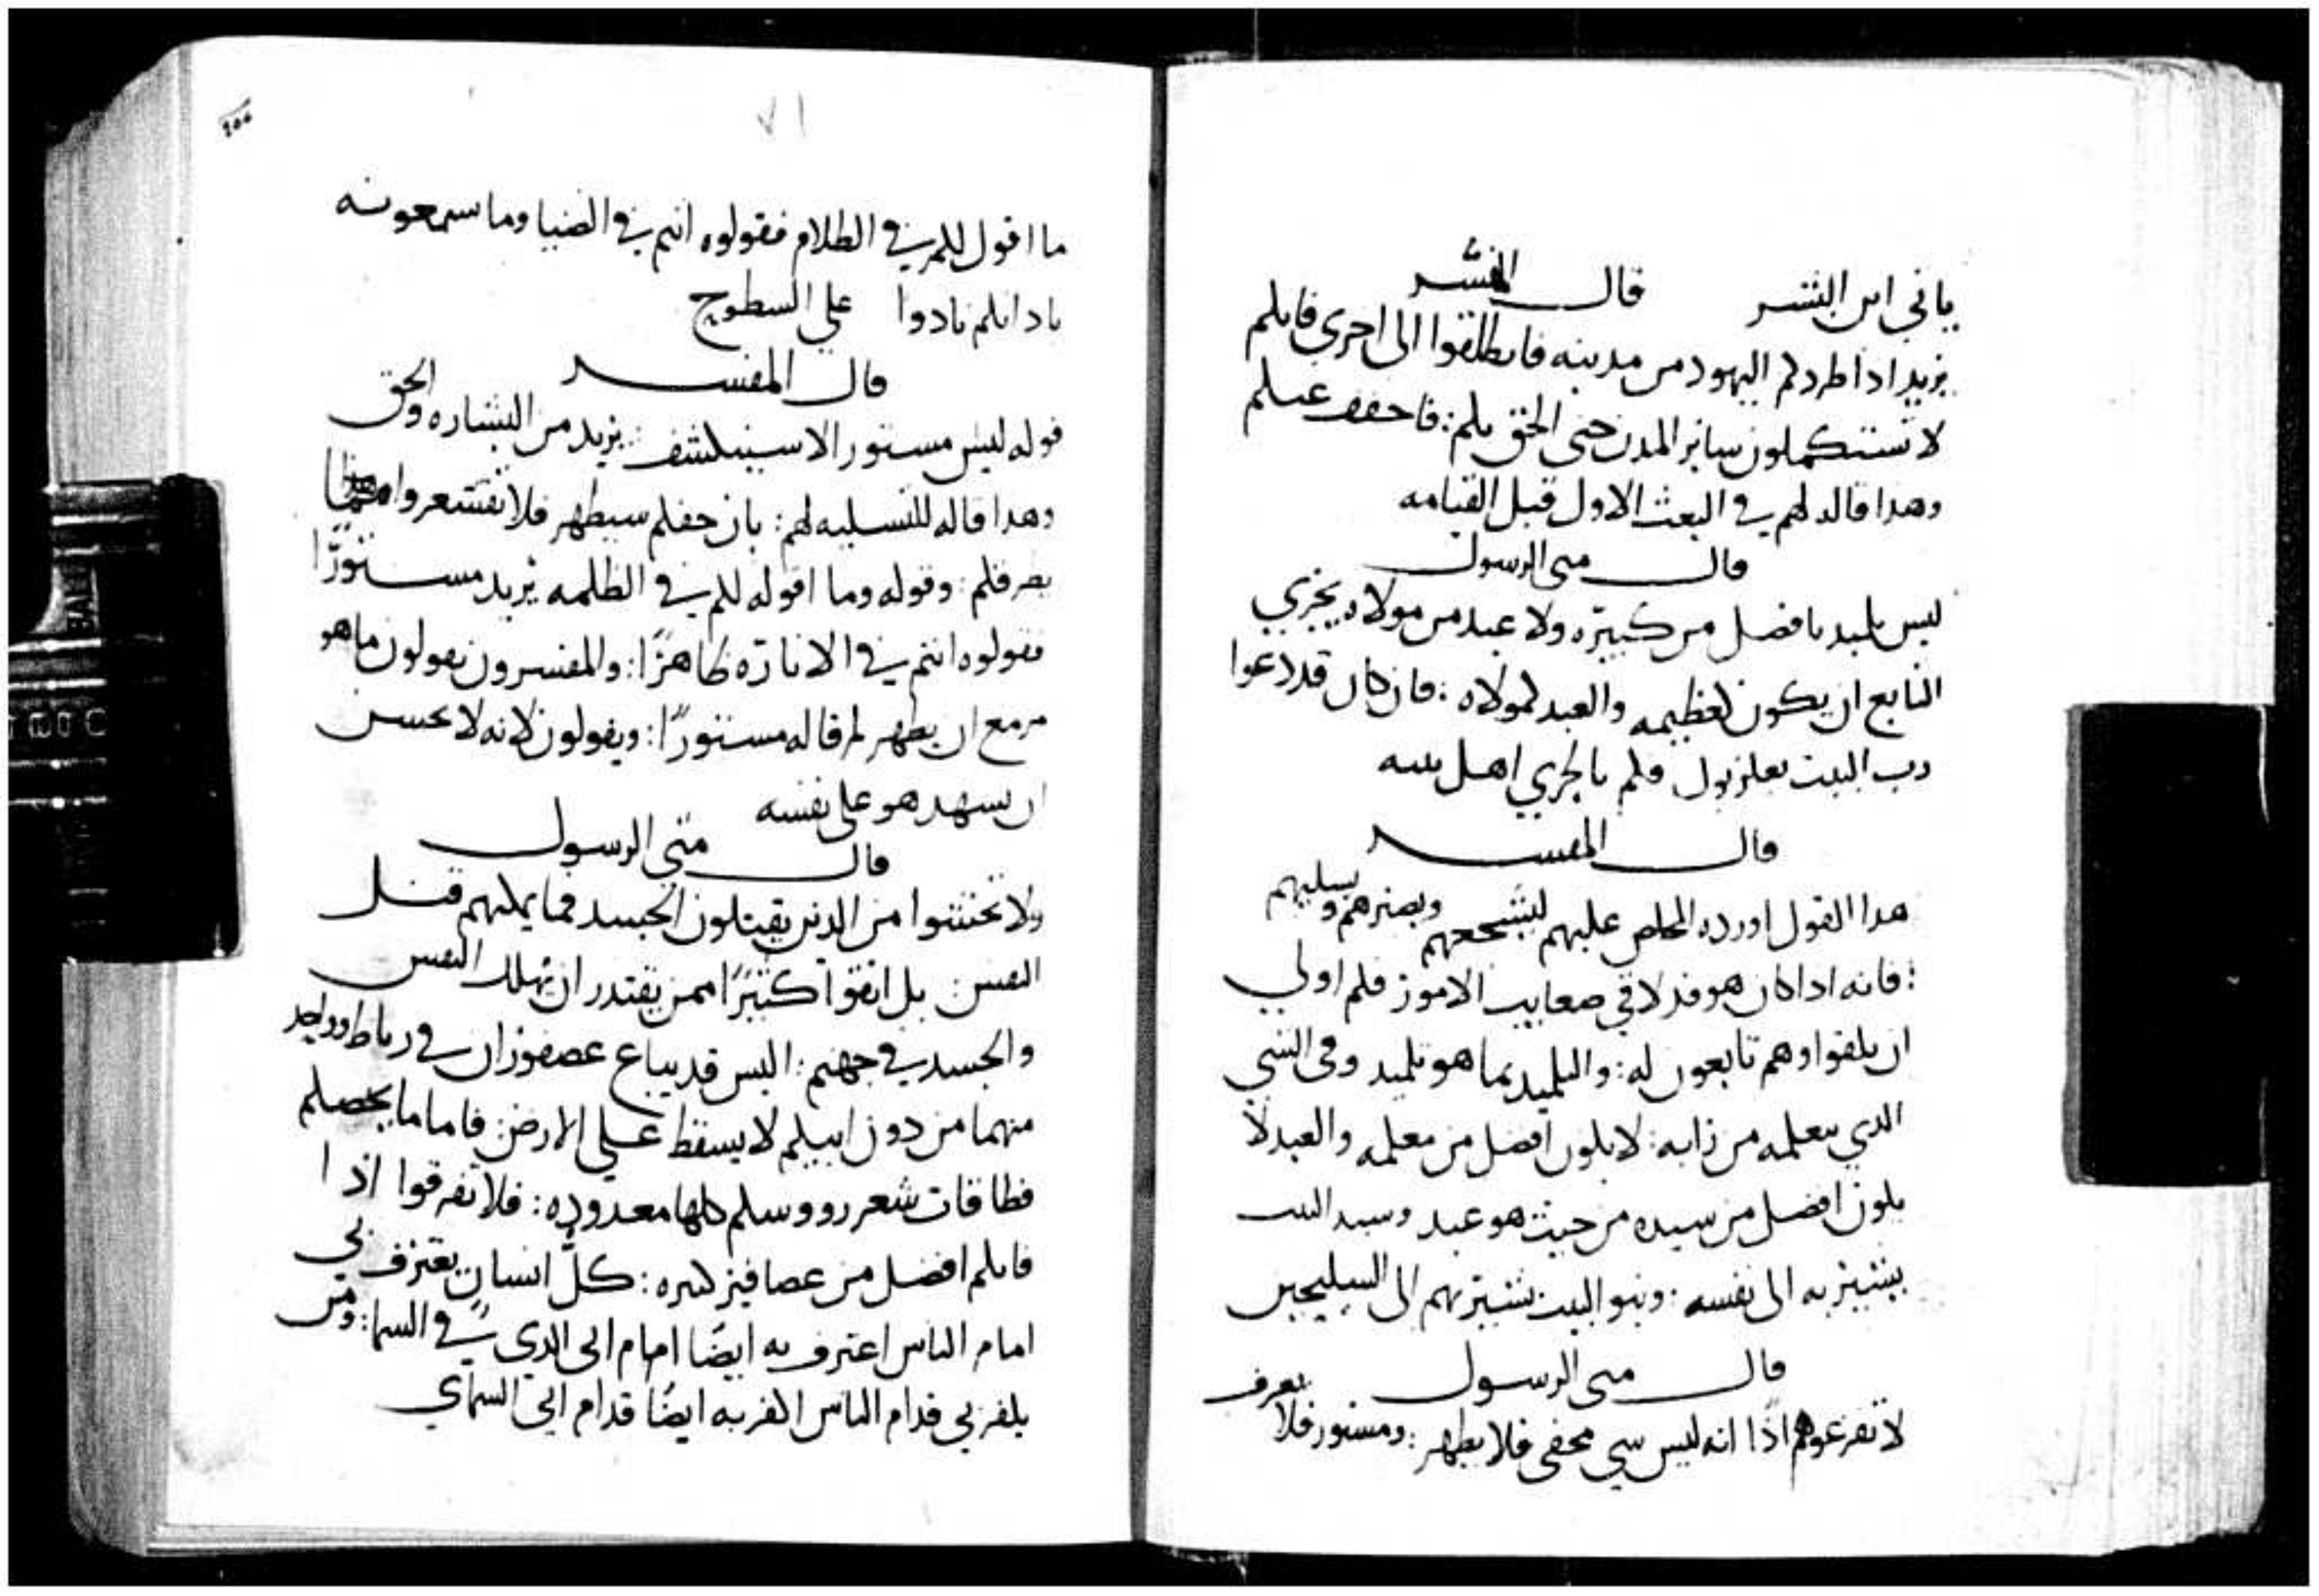 ياتي ابن البشر قال المفسر
يريد اذا طردكم اليهود من مدينه فانطلقوا الى اخرى فانكم
لا تستكملون ساير المدن حتى الحق بكم: فاخفف عنكم
وهدا قاله لهم في البعث الاول قبل القيامه
قال متى الرسول
ليس تلميد بافضل من كبيره ولا عبد من مولاه يجزي
التابع ان يكون كعظيمه والعبد كمولاه: فان كان قد دعوا
رب البيت بعلزبول فكم بالحري اهل بيته
قال المفسر
هدا القول اورده المخلص عليهم ليشجعهم ويصبرهم ويسليهم
: فانه ادا كان هو قد لاقى صعايب الامور فكم اولي
ان يلقوا وهم تابعون له: والتلميد بما هو تلميد وفى الشي
الدي يتعلمه من رابه: لا يكون افضل من معلمه والعبد لا
يكون افضل من سيده من حيث هو عبد وسيد البيت
يشير به الى نفسه: وبنو البيت يشير بهم الى السليحين
قال متى الرسول
لا تفزعوهم اذًا انه ليس شي مخفى فلا يظهر: ومستور فلا يعرف
٧١
ما اقول لكم في الظلام فقولوه انتم في الضيا وما سمعونه
باذانكم نادوا على السطوح
قال المفسر
قوله ليس مستور الا سينكشف: يريد من البشاره والحق
وهدا قاله للتسليه لهم: بان حقكم سيظهر فلا تقشعروا
بصرفكم: وقوله وما اقوله لكم في الظلمه يريد مستورًا
فقولوه انتم في الانارة ظاهرًا: والمفسرون يقولون ما هو
مزمع ان يظهر لم قاله مستورًا: ويقولون لانه لا يحسن
ان يشهد هو على نفسه
قال متى الرسول
ولا تخشوا من الدين يقتلون الجسد فما يمكنهم قتل
النفس: بل اتقوا كثيرًا ممن يقتدر ان يهلك النفس
والجسد في جهنم: اليس قد يباع عصفوران في رباط وواحد
منهما من دون ابيكم لا يسقط على الارض فاما ما يخصكم
فطاقات شعر رووسكم كلها معدوده: فلا تفرقوا اذا
فانكم افضل من عصافير كثيره: كلُّ انسان يعترف بي
امام الناس اعترف به ايضًا امام ابى الدي في السما: ومن
يكفر بي قدام الناس اكفر به ايضًا قدام ابي السماي